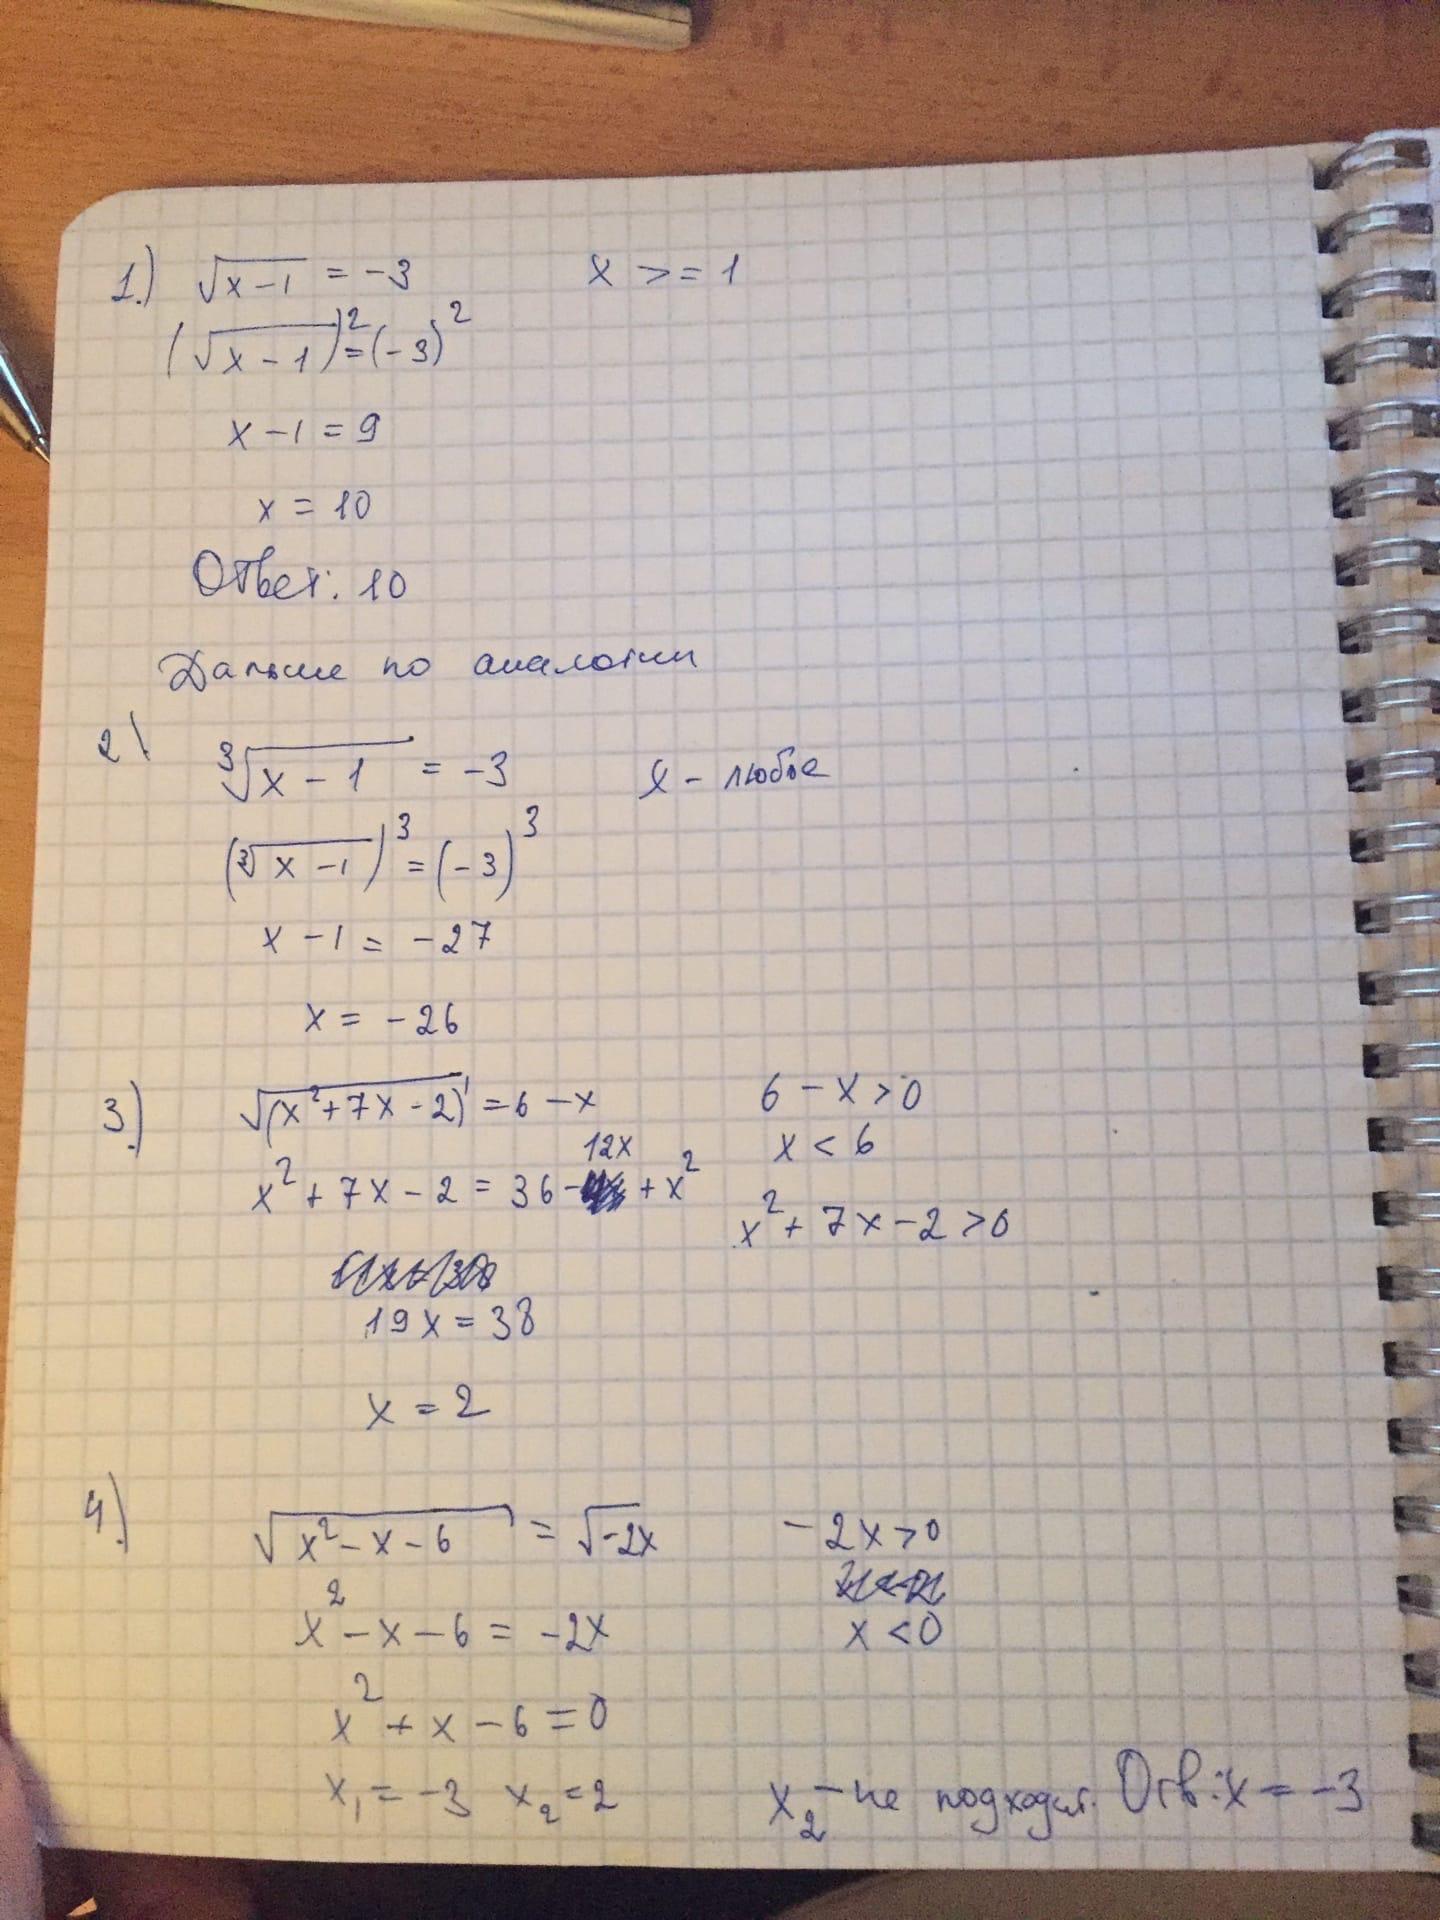 1.) √x-1 = -3 x >= 1
(√x-1)² = (-3)²
x-1 = 9
x = 10
Ответ: 10
Дальше по аналогии
2) ³√x-1 = -3 x - любое
(³√x-1)³ = (-3)³
x-1 = -27
x = -26
3.) √(x²+7x-2) = 6-x 6-x>0
x<6
x²+7x-2 = 36-12x+x²
x²+7x-2>0
19x = 38
x = 2
4.) √x²-x-6 = √-2x -2x>0
x²-x-6 = -2x x<0
x²+x-6=0
x₁ = -3 x₂ = 2 x₂ - не подходит. Отв: x = -3